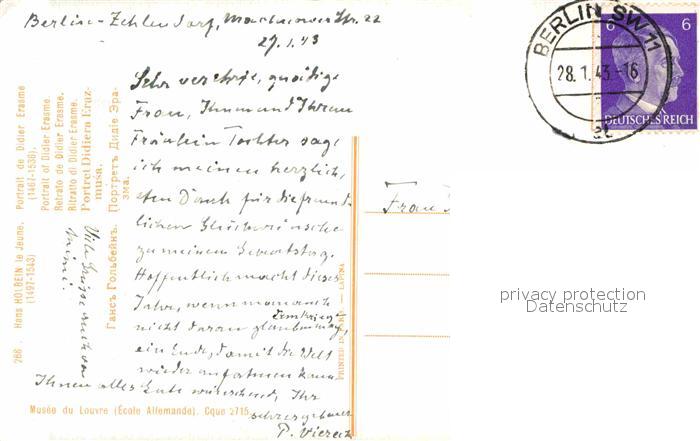 Berlin-Zehlendorf, Machnower Str. 22
27.1.43
Sehr verehrte, gnädige
Frau, Ihnen und Ihrem
Fräulein Tochter sage
ich meinen herzlich-
sten Dank für die freund-
lichen Glückwünsche
zu meinem Geburtstag.
Hoffentlich macht dieses
Jahr, wenn man auch
nicht daran glauben mag,
dem Kriege
ein Ende, damit die Welt
wieder aufatmen kann.
Ihnen alles Gute wünschend, Ihr
sehr ergebener
P. Viereck
Viele Grüsse auch von
Mimi.
Frau
BERLIN SW 11
28.1.43.-16
6 6
DEUTSCHES REICH
privacy protection
Datenschutz
266. Hans HOLBEIN le Jeune.
(1497-1543)
Portrait de Didier Erasme
(1467-1536).
Portrait of Didier Erasme.
Retrato de Didier Erasme.
Ritratto di Didier Erasme.
Portret Didiera Eraz-
muśa.
Гансъ Гольбейнъ.
Портретъ Дидіе Эра-
зма.
Musée du Louvre (École Allemande). Cque 2715
PRINTED IN — LAPINA